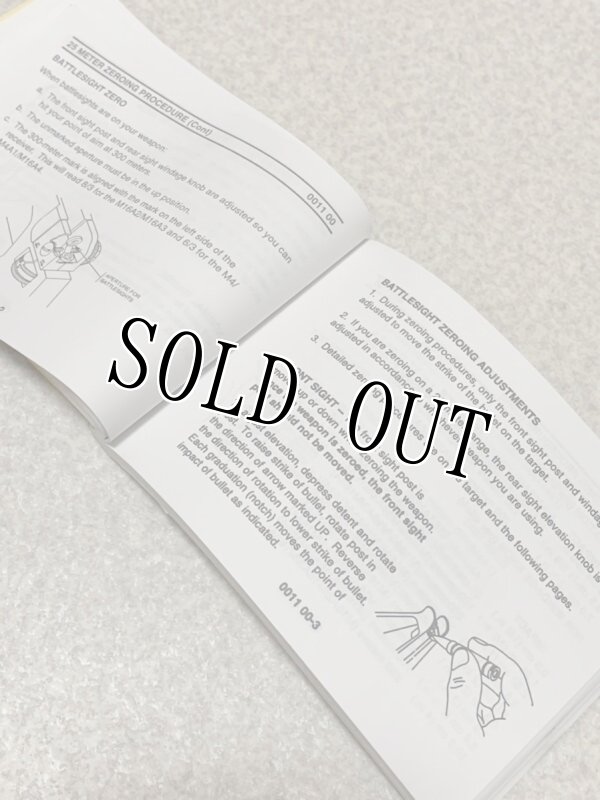 25 METER ZEROING PROCEDURE (Cont)
0011 00
BATTLESIGHT ZERO
When battlesights are on your weapon:
a. The front sight post and rear sight windage knob are adjusted so you can
hit your point of aim at 300 meters.
b. The unmarked aperture must be in the up position.
c. The 300-meter mark is aligned with the mark on the left side of the
receiver. This will read 8/3 for the M16A2/M16A3 and 6/3 for the M4/
M4A1/M16A4.
APERTURE FOR
BATTLESIGHTS
BATTLESIGHT ZEROING ADJUSTMENTS
1. During zeroing procedures, only the front sight post and windage
adjusted to move the strike of the bullet on the target.
2. If you are zeroing on a range, the rear sight elevation knob is
adjusted in accordance with whichever weapon you are using.
3. Detailed zeroing procedures are on target and the following pages.
FRONT SIGHT – front sight post is
moved up or down when zeroing the weapon.
Once weapon is zeroed, the front sight
post should not be moved.
elevation, depress detent and rotate
post. To raise strike of bullet, rotate post in
the direction of arrow marked UP. Reverse
the direction of rotation to lower strike of bullet.
Each graduation (notch) moves the point of
impact of bullet as indicated.
0011 00-3
SOLD OUT